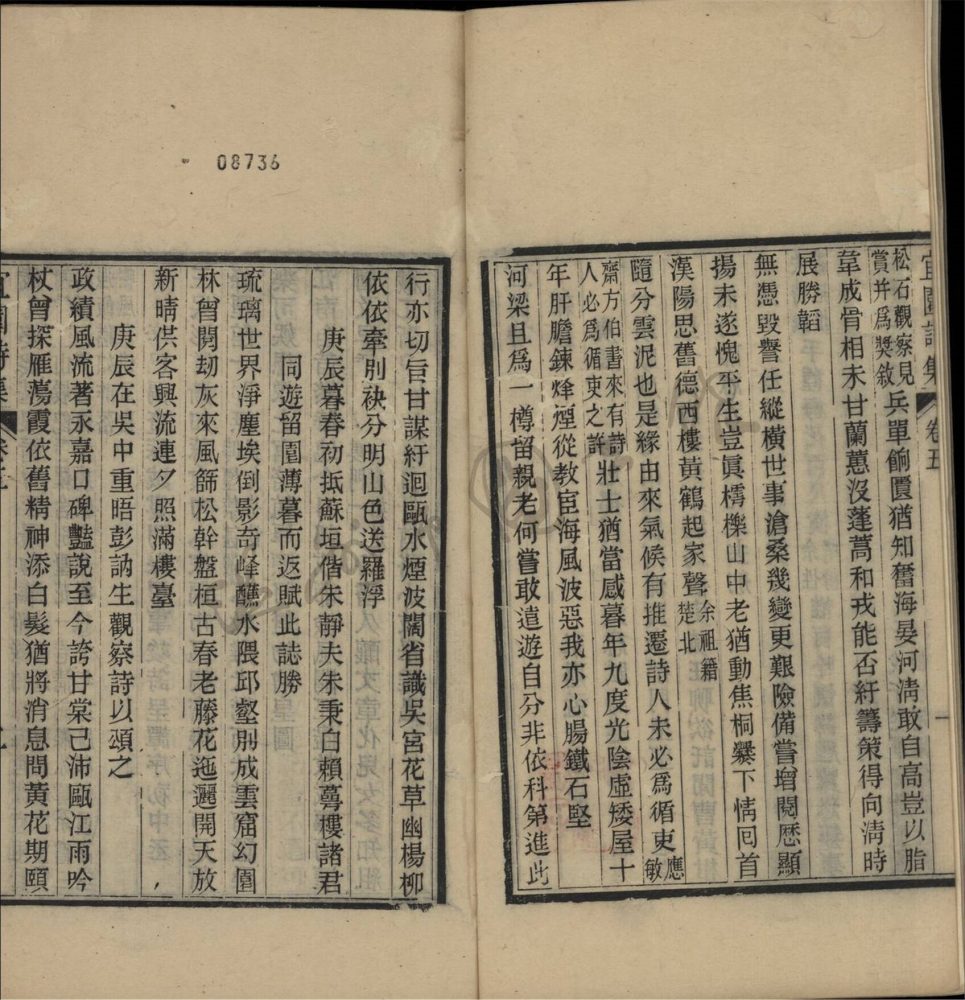 宜園詩集 卷五 一
松石觀察見賞并爲獎敘兵單餉匱猶知奮海晏河淸敢自高豈以脂
韋成骨相未甘蘭蕙沒蓬蒿和戎能否紓籌策得向淸時
展勝韜
無憑毀譽任縱橫世事滄桑幾變更艱險備嘗增閱歷顯
揚未遂愧平生豈眞樗櫟山中老猶動焦桐爨下情囘首
漢陽思舊德西樓黃鶴起家聲余祖籍楚北
隨分雲泥也是緣由來氣候有推遷詩人未必爲循吏應敏
齋方伯書來有詩人必爲循吏之許壯士猶當感暮年九度光陰虛矮屋十
年肝膽鍊烽煙從敎宦海風波惡我亦心腸鐵石堅
河梁且爲一樽留親老何嘗敢遠遊自分非依科第進此
行亦切旨甘謀紆迴甌水煙波闊省識吳宮花草幽楊柳
依依牽別袂分明山色送羅浮
庚辰暮春初抵蘇垣偕朱靜夫朱秉白賴蕚樓諸君
同遊留園薄暮而返賦此誌勝
琉璃世界淨塵埃倒影奇峰蘸水隈邱壑別成雲窟幻園
林曾閱劫灰來風篩松幹盤桓古春老藤花迤邐開天放
新晴供客興流連夕照滿樓臺
庚辰在吳中重晤彭訥生觀察詩以頌之
政績風流著永嘉口碑豔說至今誇甘棠已沛甌江雨吟
杖曾探雁蕩霞依舊精神添白髮猶將消息問黃花期頤
宜園詩集
08736